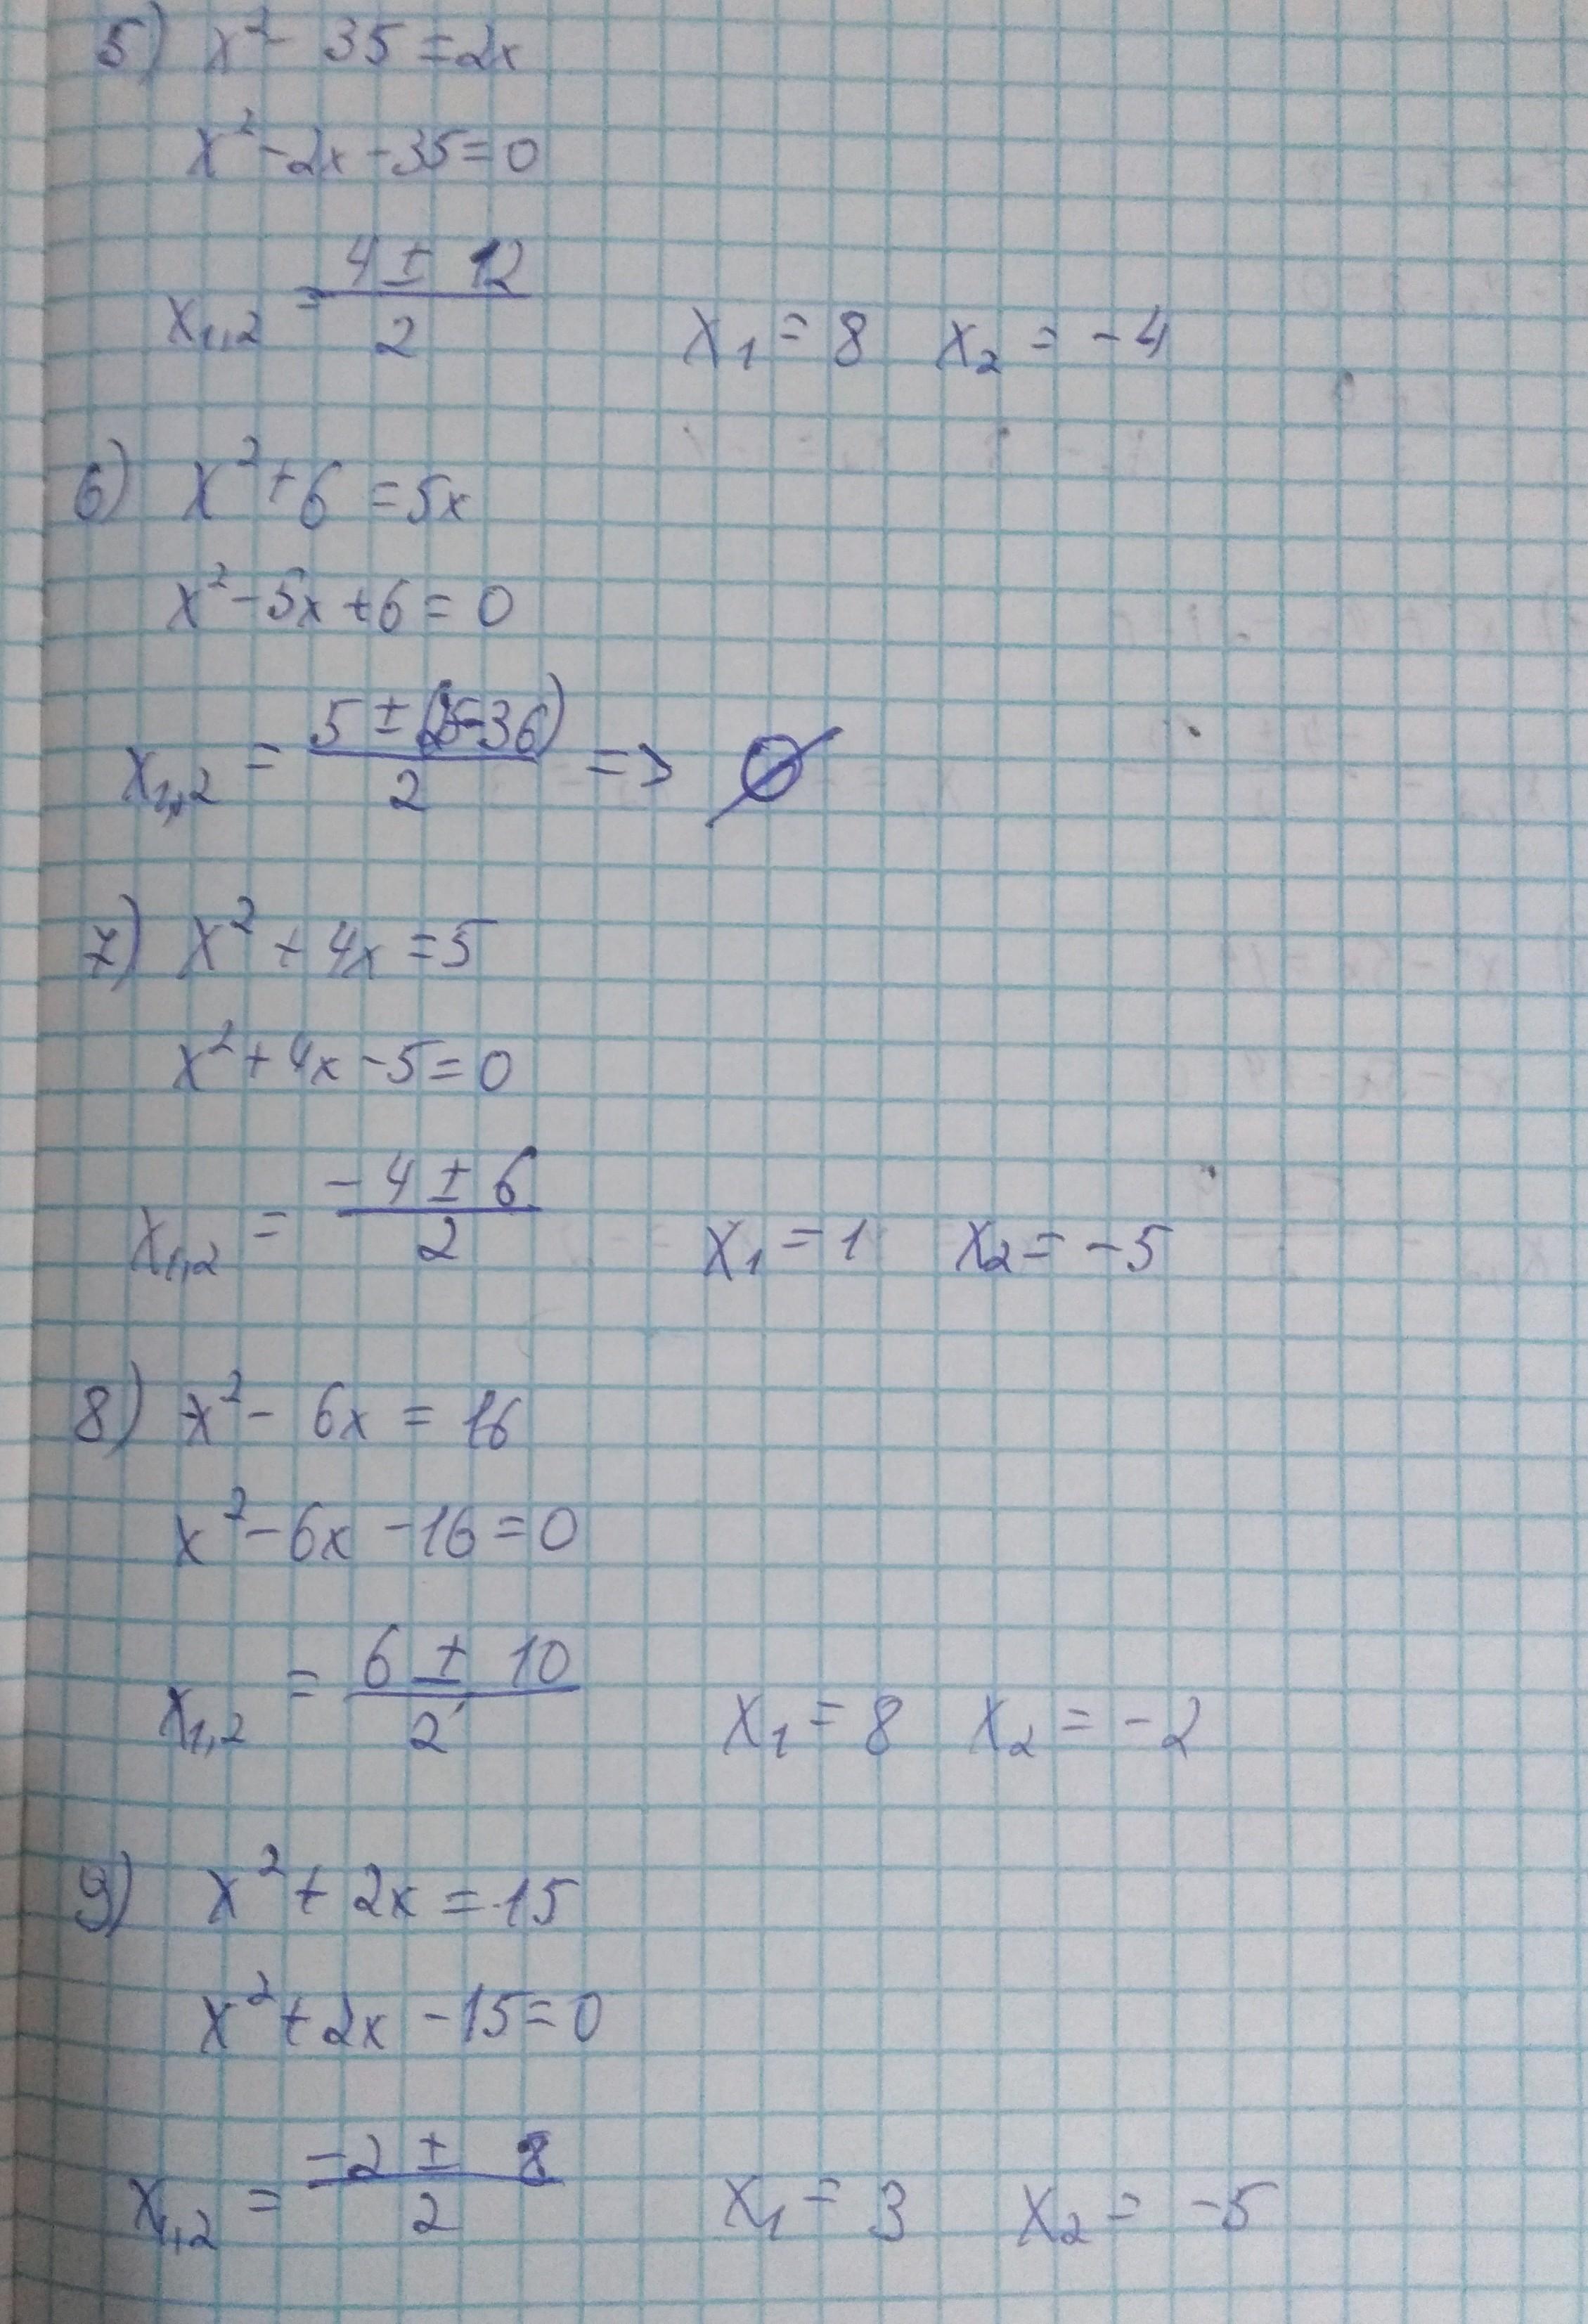 5) x² - 35 = 2x
x² - 2x - 35 = 0
x₁,₂ = (4 ± 12)/2   x₁ = 8   x₂ = -4
6) x² + 6 = 5x
x² - 5x + 6 = 0
x₁,₂ = (5 ± (25-36))/2 => ∅
7) x² + 4x = 5
x² + 4x - 5 = 0
x₁,₂ = (-4 ± 6)/2   x₁ = 1   x₂ = -5
8) x² - 6x = 16
x² - 6x - 16 = 0
x₁,₂ = (6 ± 10)/2   x₁ = 8   x₂ = -2
9) x² + 2x = 15
x² + 2x - 15 = 0
x₁,₂ = (-2 ± 8)/2   x₁ = 3   x₂ = -5